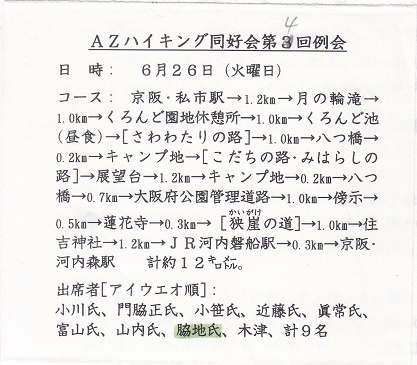 AZハイキング同好会第3回例会
4
日　時：　6月26日（火曜日）
コース：　京阪・私市駅→1.2km→月の輪滝→
1.0km→くろんど園地休憩所→1.0km→くろんど池
(昼食)→[さわわたりの路]→1.0km→八つ橋→
0.2km→キャンプ地→[こだちの路・みはらしの
路]→展望台→1.2km→キャンプ地→0.2km→八つ
橋→0.7km→大阪府公園管理道路→1.0km→傍示→
0.5km→蓮花寺→0.3km→［狭崖の道］→1.0km→住
かいがけ
吉神社→1.2km→ＪＲ河内磐船駅→0.3km→京阪・
河内森駅　　計約12キロメートル。
出席者[アイウエオ順]：
小川氏、門脇正氏、小笹氏、近藤氏、眞常氏、
富山氏、山内氏、脇地氏、木津、計9名